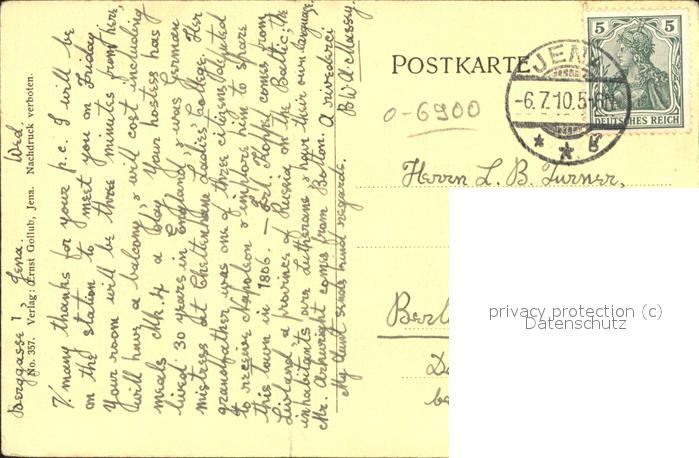 Berggasse 1, Jena. Wed.
V. many thanks for your p.c. I will be
on the station to meet you on Friday.
Your room will be three minutes from here,
will have a balcony, & will cost including
meals Mk. 4 a day. Your hostess has
lived 30 years in England, & was German
mistress at Cheltenham Ladies' College. Her
grandfather was one of three citizens deputed
to receive Napoleon & implore him to spare
this town in 1806. — Frl. Hoppe comes from
Livland, a province of Russia on the Baltic; the
inhabitants are Lutherans & have their own language.
Mr. Arkwright comes from Bolton. A rivederci
B W A Massey.
My Aunt sends kind regards.
No. 357. Verlag: Ernst Gollub, Jena. Nachdruck verboten.
POSTKARTE
JENA
-6.7.10.5-6N
* * g
5 5
DEUTSCHES REICH
0-6900
Herrn L. B. Turner,
Berl
be
privacy protection (c)
Datenschutz